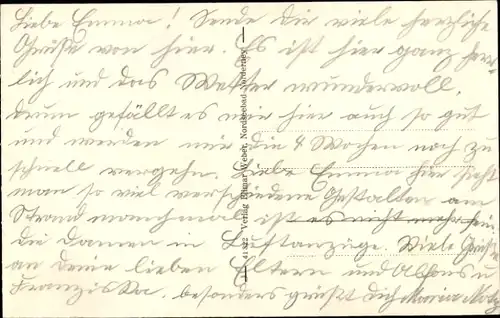 Liebe Emma! Sende Dir viele herzliche
Grüße von hier. Es ist hier ganz herr-
lich und das Wetter wundervoll,
drum gefällt es mir hier auch so gut
und werden mir die 4 Wochen noch zu
schnell vergehn. Liebe Emma hier sieht
man so viel verschiedene Gestalten am
Strand manchmal ist es nicht mehr
die Damen in Luftanzüge. Viele Grüße
an deine lieben Eltern und Alfons u
Franziska. besonders grüßt dich Maria
41822 Verlag Elimar Weber, Nordseebad Norderney